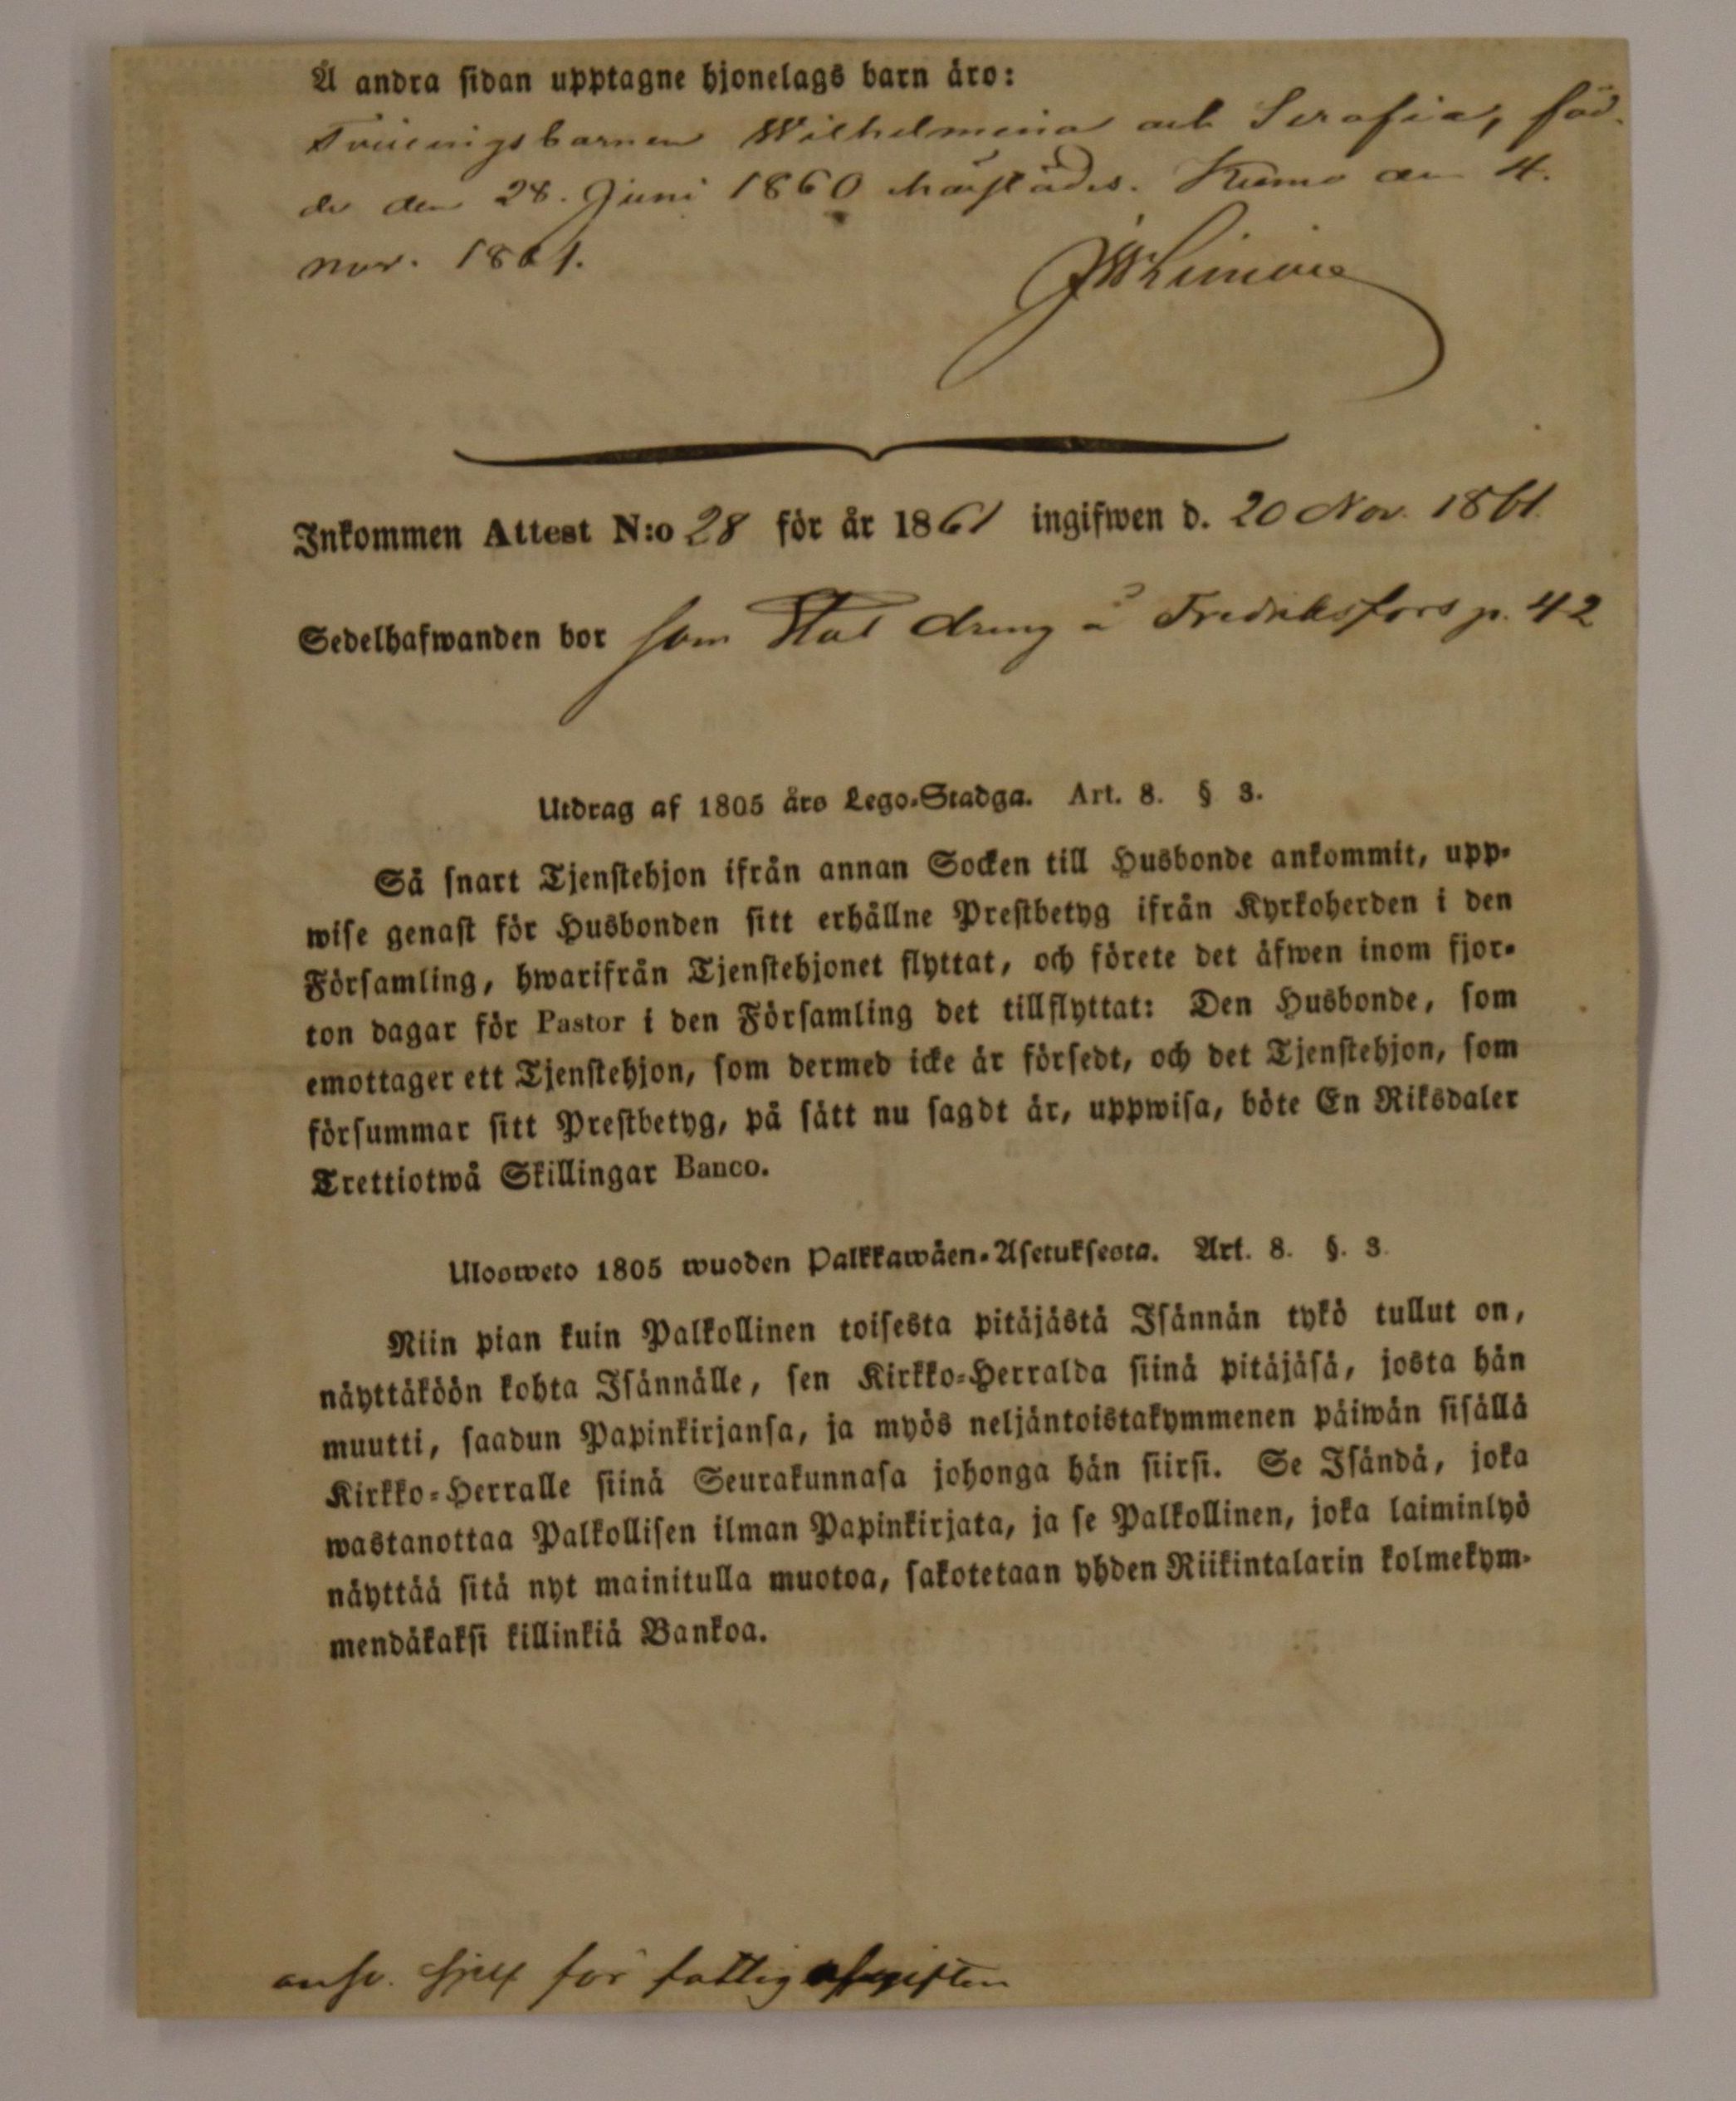 Å andra sidan upptagne hjonelags barn äro:
Tvillingsbarnen Wilhelmina och Serafia, föd-
de den 28. Juni 1860 härstädes. Kumo den 4.
nov. 1861.
Inkommen Attest N:o 28 för år 1861 ingifwen d. 20 Nov. 1861.
Sedelhafwanden bor som Stat dreng å Fredriksfors p. 42
Utdrag af 1805 års Lego-Stadga. Art. 8. § 3.
Så snart Tjenstehjon ifrån annan Socken till Husbonde ankommit, upp-
wise genast för Husbonden sitt erhållne Prestbetyg ifrån Kyrkoherden i den
Församling, hwarifrån Tjenstehjonet flyttat, och förete det äfwen inom fjor-
ton dagar för Pastor i den Församling det tillflyttat: Den Husbonde, som
emottager ett Tjenstehjon, som dermed icke är försedt, och det Tjenstehjon, som
försummar sitt Prestbetyg, på sätt nu sagdt är, uppwisa, böte En Riksdaler
Trettiotwå Skillingar Banco.
Ulosweto 1805 wuoden Palkkawäen-Asetuksesta. Art. 8. §. 3.
Niin pian kuin Palkollinen toisesta pitäjästä Isännän tykö tullut on,
näyttäköön kohta Isännälle, sen Kirkko-Herralda siinä pitäjäsä, josta hän
muutti, saadun Papinkirjansa, ja myös neljäntoistakymmenen päiwän sisällä
Kirkko-Herralle siinä Seurakunnasa johonga hän siirsi. Se Isändä, joka
wastanottaa Palkollisen ilman Papinkirjata, ja se Palkollinen, joka laiminlyö
näyttää sitä nyt mainitulla muotoa, sakotetaan yhden Riikintalarin kolmekym-
mendäkaksi killinkiä Bankoa.
answ. sjelf för fattigafgiften